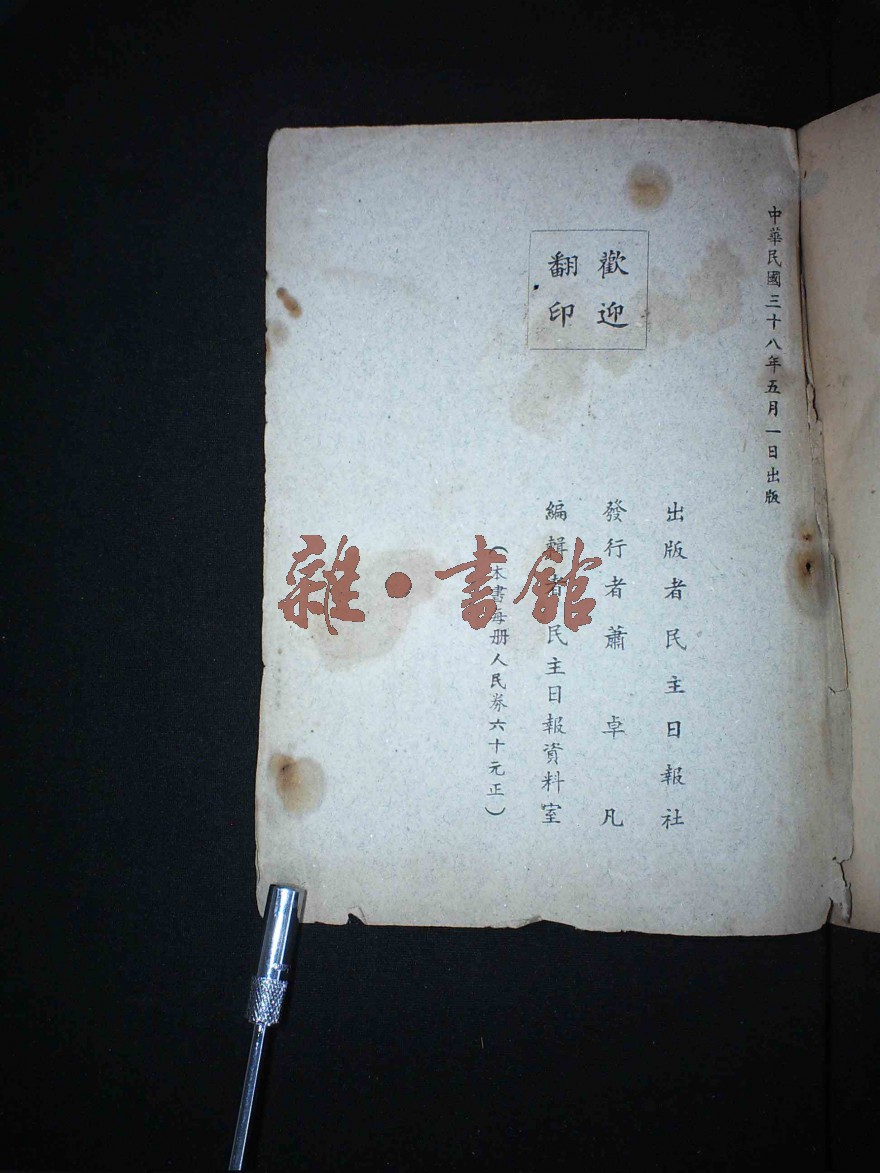 中華民國三十八年五月一日出版
歡迎
翻印
出版者民主日報社
發行者蕭卓凡
編輯者民主日報資料室
（本書每册人民券六十元正）
雜·書館